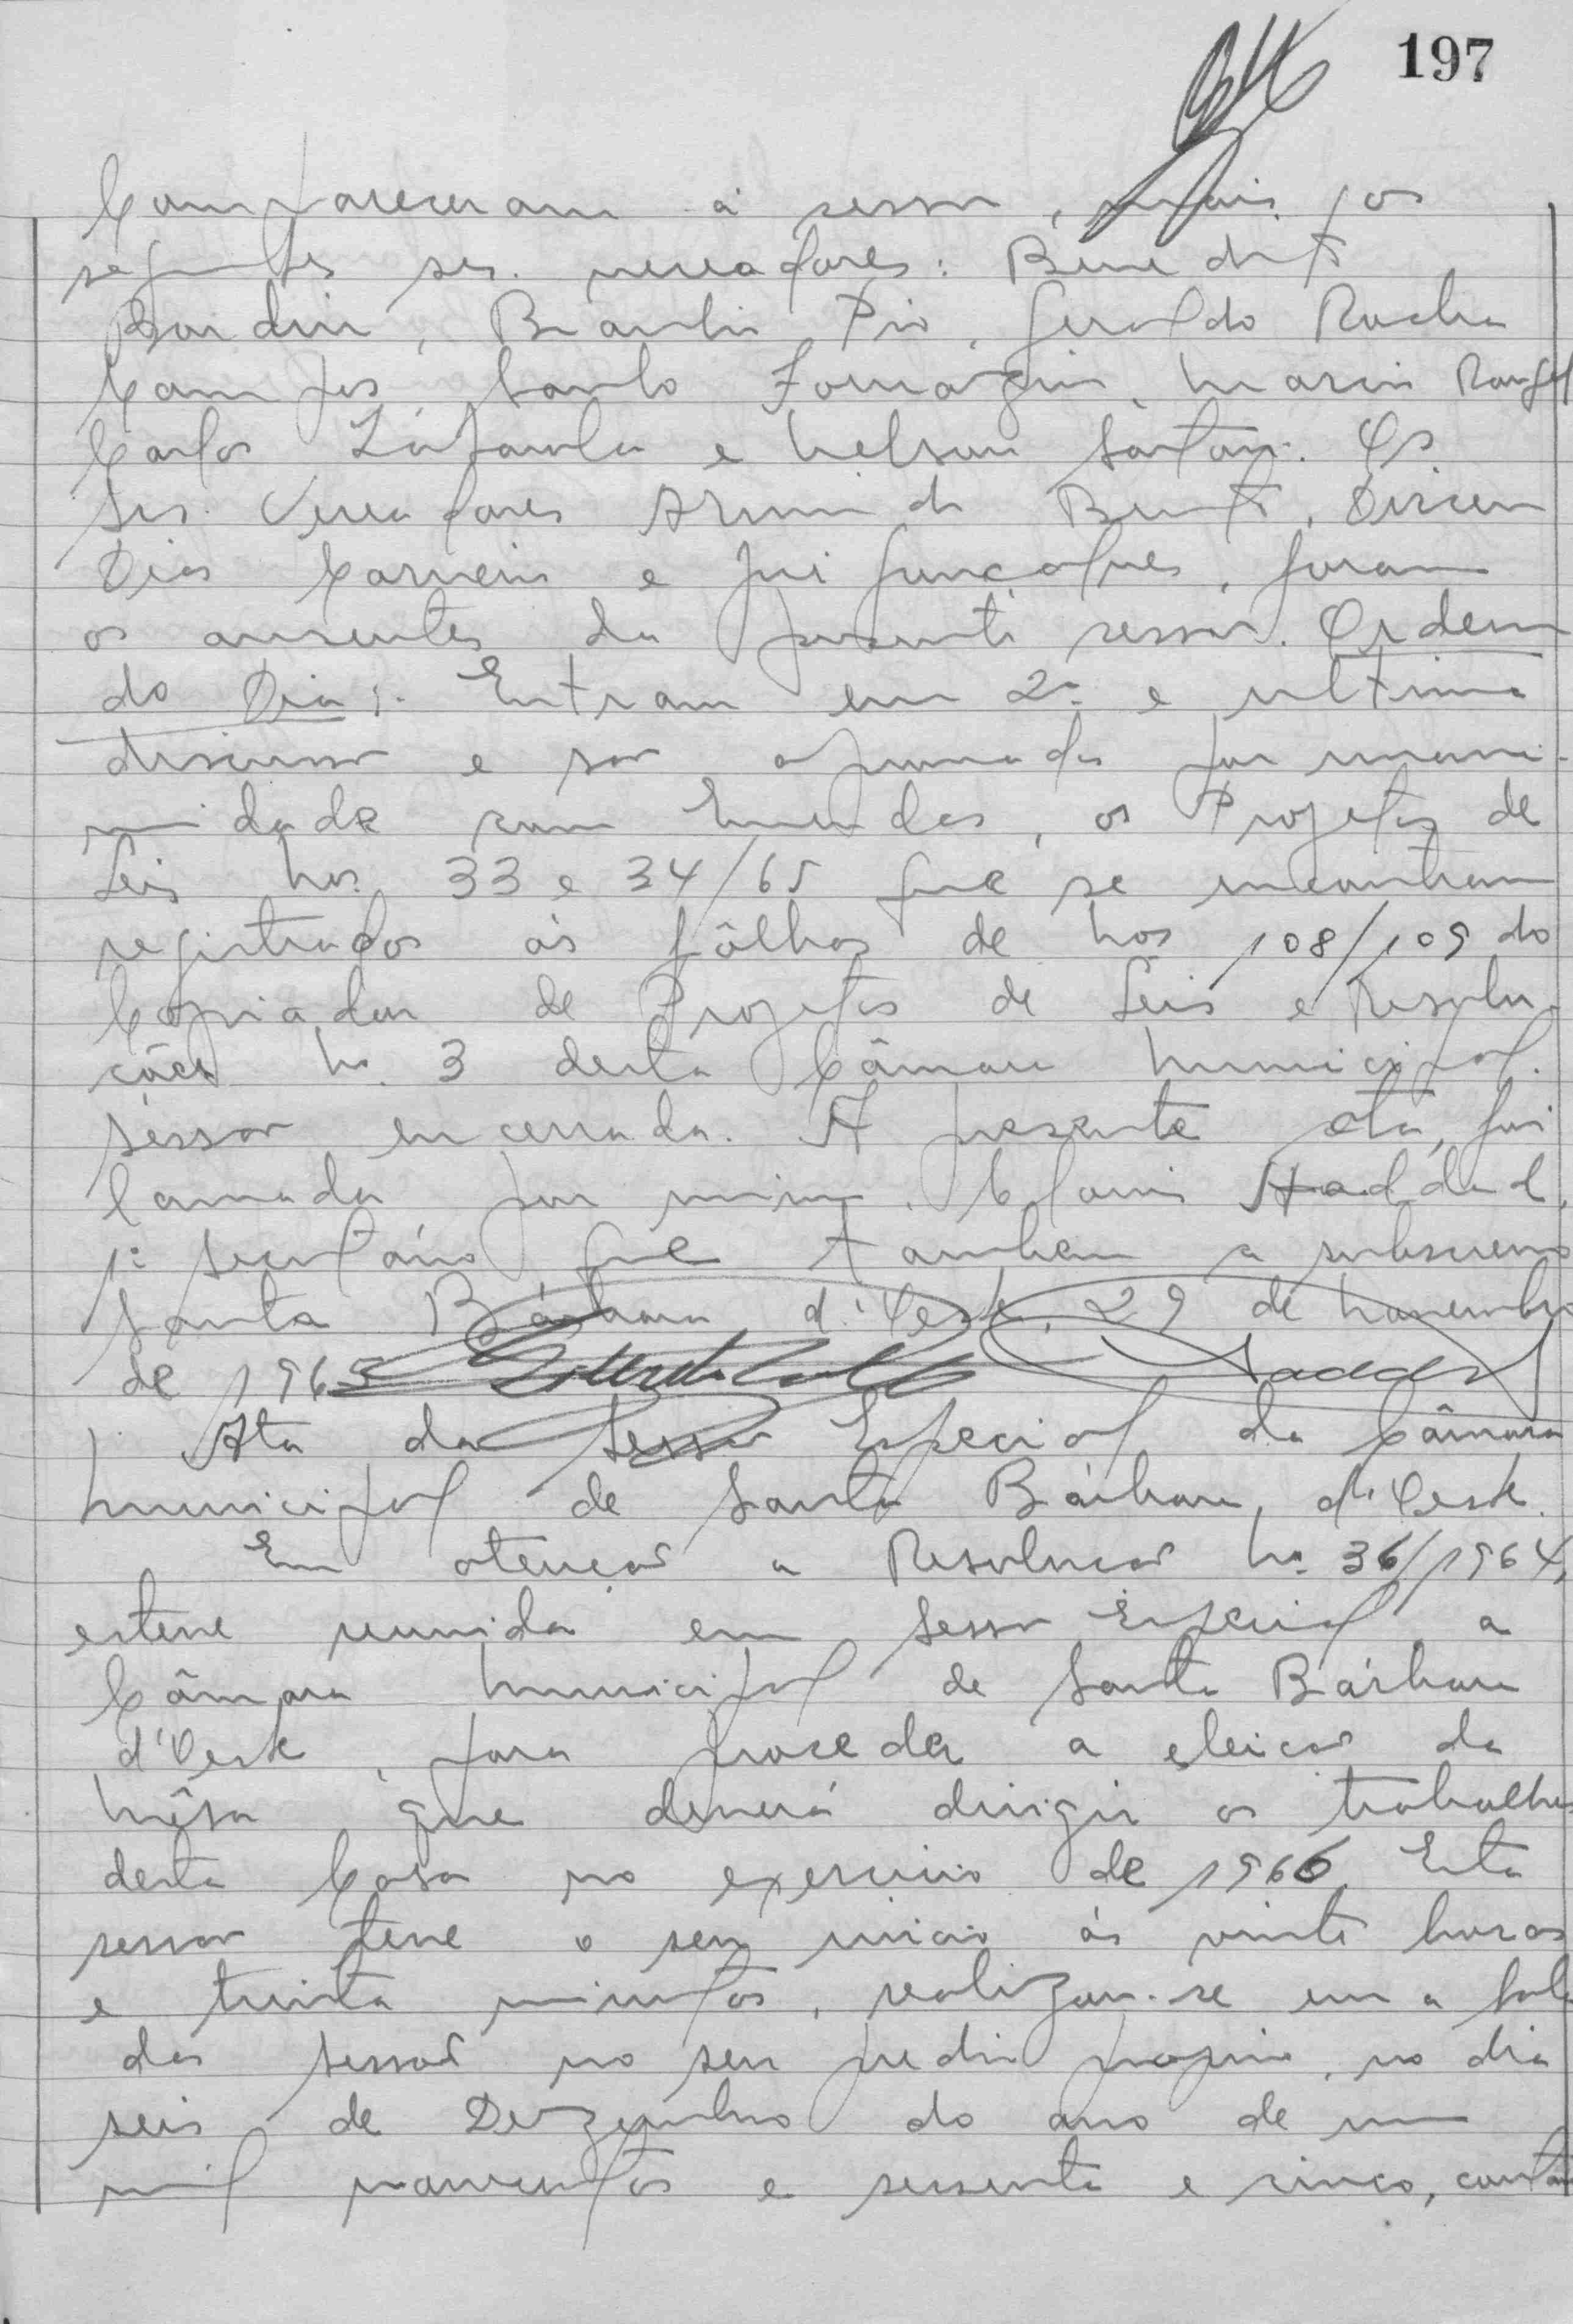 197
Compareceram à sessão, mais os
seguintes srs. vereadores: Benedito
Bordin, Braulio Pio, Geraldo Rocha
Campos, Paulo Fornazin, Mario Rangel
Carlos e Nelson. Os
Srs. Vereadores Armindo Bento, Dirceu
Dias Carneiro e Gonçalves, foram
os ausentes da presente sessão. Ordem
do Dia: Entram em 2ª e ultima
discussão e são aprovados por unani-
midade com Emendas, os Projetos de
Leis Nos. 33 e 34/65 que se encontram
registrados às fôlhas de Nos 108/109 do
Copiador de Projetos de Leis e Resolu-
ções No. 3 desta Câmara Municipal.
Sessão encerrada. A presente ata, foi
lavrada por mim Haddad,
1º Secretário que tambem a subscrevo
Santa Bárbara d'Oeste, 29 de Novembro
de 1965
Ata da Sessão Especial da Câmara
Municipal de Santa Bárbara, d'Oeste.
Em atenção a Resolução No. 36/1964,
esteve reunida em Sessão Especial a
Câmara Municipal de Santa Bárbara
d'Oeste, para proceder a eleição da
Mêsa que deverá dirigir os trabalhos
desta Casa no exercicio de 1966. Esta
sessão teve o seu inicio às vinte horas
e trinta minutos, realizou-se em a Sala
das sessões no seu predio proprio, no dia
seis de Dezembro do ano de um
mil novecentos e sessenta e cinco,